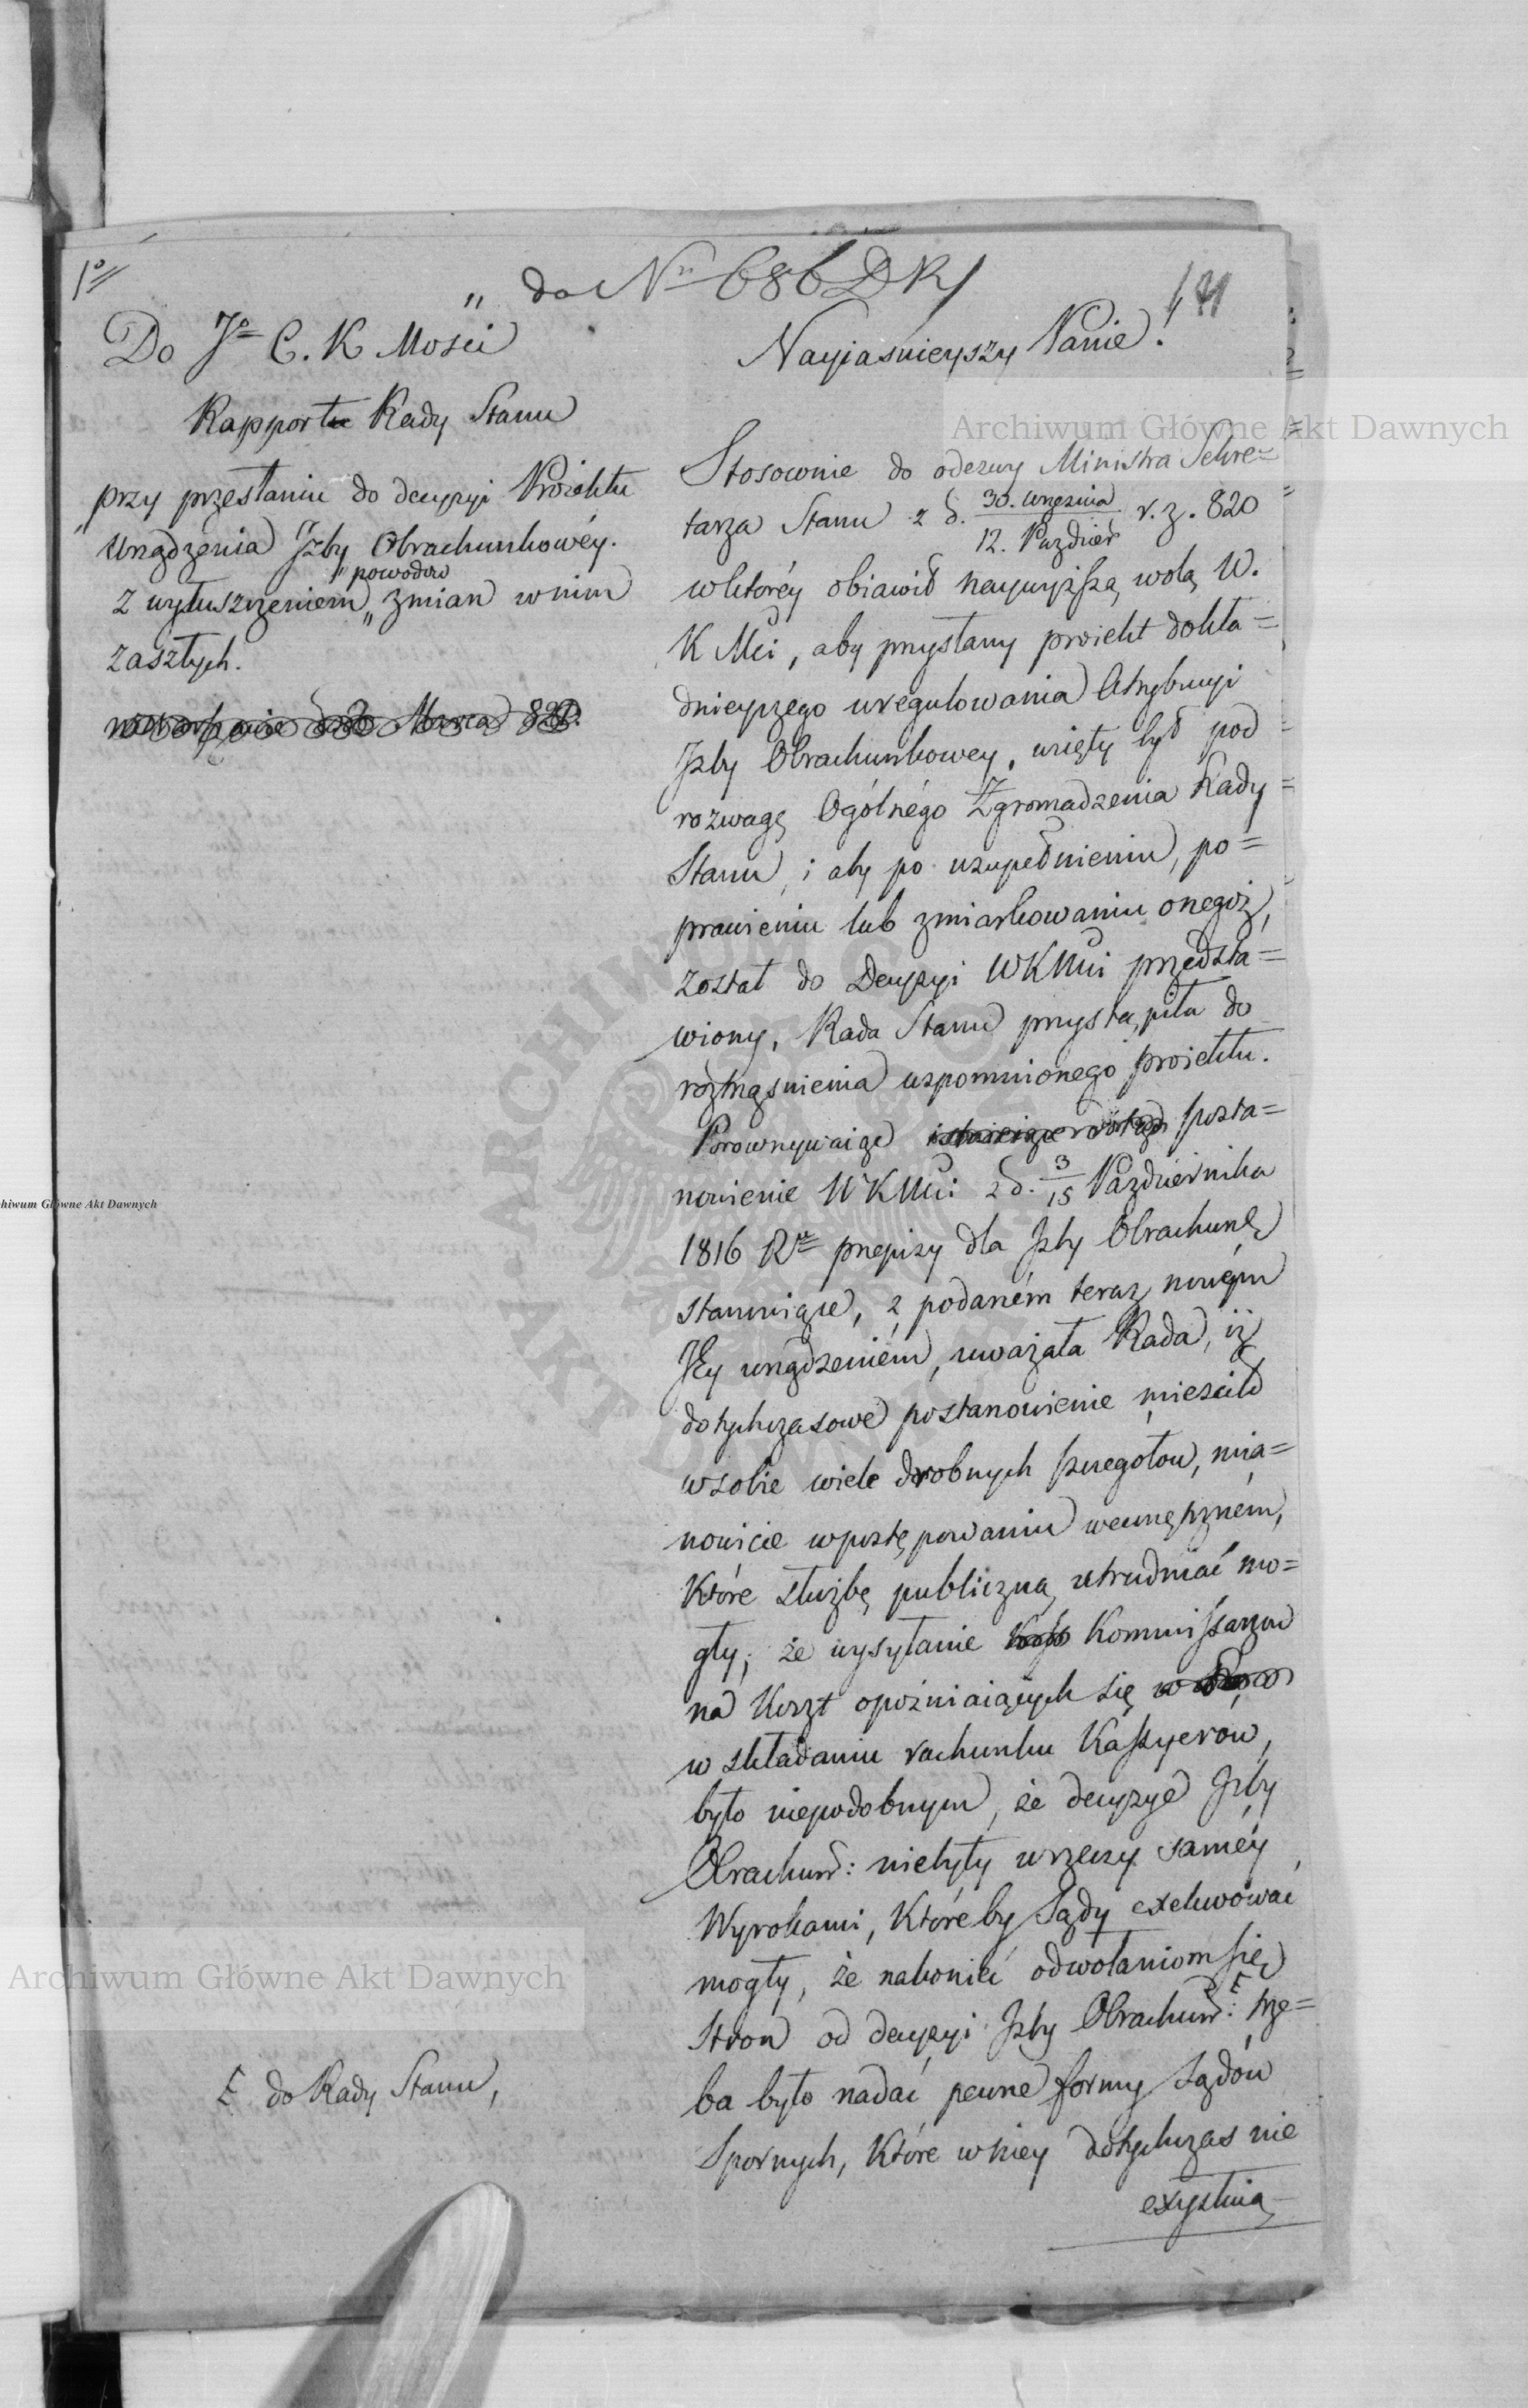 1º
do Nrº 686 DKS
121
Do Jº C. K Mosci
Rapport Rady Stanu
przy przesłaniu do decyzyi Proiektu
Urządzenia Jzby Obrachunkowéy.
powodów
z wyłuszczeniem zmian w nim
zaszłych.
Marca 820.
Nayiaśnieyszy Panie!
Stosownie do odezwy Ministra Sekre=
tarza Stanu z d. 30. Września / 12. Paździer r. z. 820
w któréy obiawił naywyższą wolą W.
K Mci, aby przysłany proiekt dokła=
dnieyszego uregulowania Attrybucyi
Jzby Obrachunkowey, wzięty był pod
rozwagę Ogólnégo Zgromadzenia Rady
Stanu, i aby po uzupełnieniu, po=
prawieniu lub zmiarkowaniu onegoż,
został do Decyzyi WKMci przedsta=
wiony, Rada Stanu przystąpiła do
roztrząśnienia wspomnionego proiektu.
Porownywaiąc posta=
nowienie WKMci z d. 3/15 Października
1816 Rº przepisy dla Jzby Obrachunk
stanowiące, z podaném teraz nowém
Jéy urządzeniém, uważała Rada, iż
dotychczasowe postanowienie mieściło
w sobie wiele drobnych szczegołow, mia=
nowicie w postępowaniu wewnętrzném,
które służbę publiczną utrudniać mo=
gły; że wysyłanie Kommissarzow
na koszt opoźniaiących się
w składaniu rachunku Kassyerów,
było niepodobnym, że decyzye Jzby
Obrachun: niebyły w rzeczy saméy
Wyrokami, któréby Sądy exekwować
mogły, że nakoniec odwołaniom się
Stron od decyzyi Jzby Obrachun: trze=
ba było nadać pewne formy Sądów
Spornych, które w niey dotychczas nie
exystuią
do Rady Stanu,
Archiwum Główne Akt Dawnych
Archiwum Główne Akt Dawnych
hiwum Główne Akt Dawnych
ARCHIWUM GŁÓWNE AKT DAWNYCH